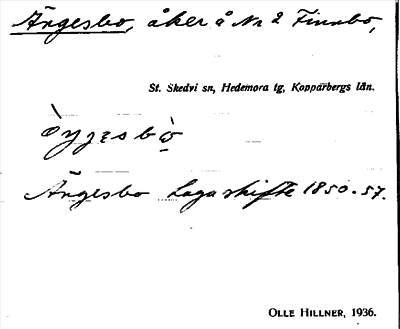 Ängesbo, åker å Nr 2 Finnbo,
St. Skedvi sn, Hedemora tg, Kopparbergs län.
Ängesbo Laga skifte 1850-57.
OLLE HILLNER, 1936.